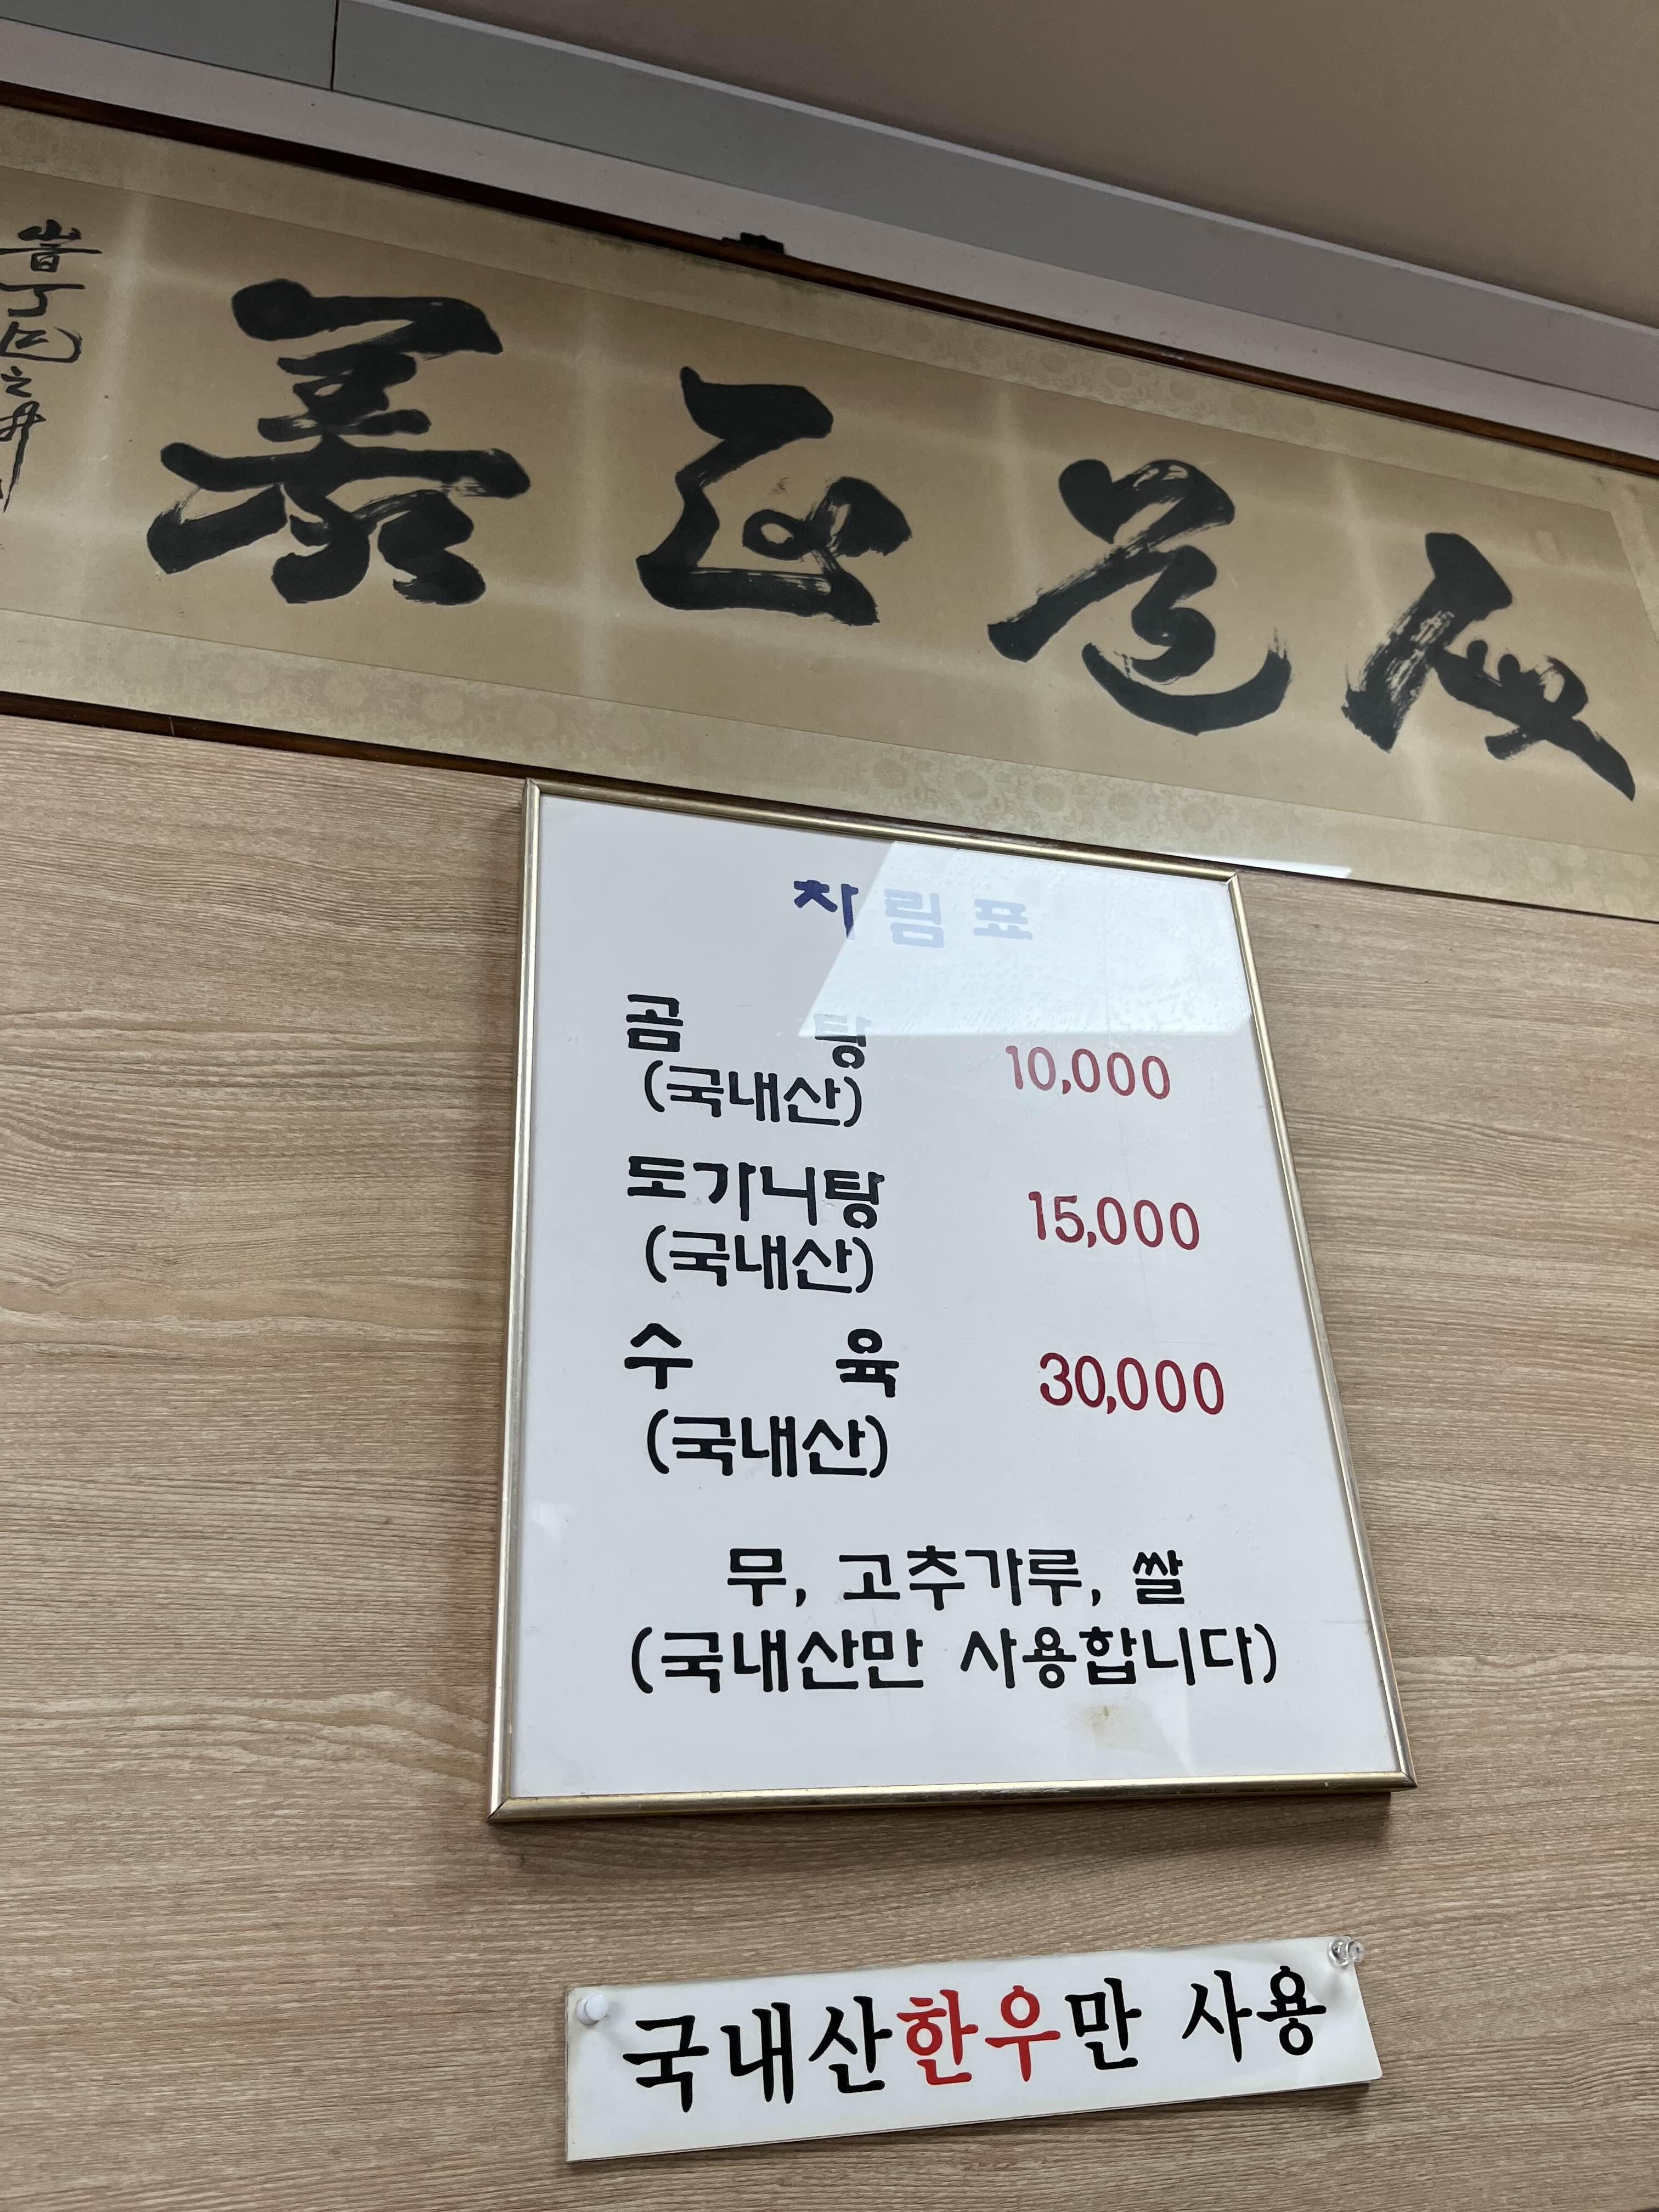 차림표
곰탕 10,000
(국내산)
도가니탕 15,000
(국내산)
수육 30,000
(국내산)
무, 고추가루, 쌀
(국내산만 사용합니다)
국내산한우만 사용